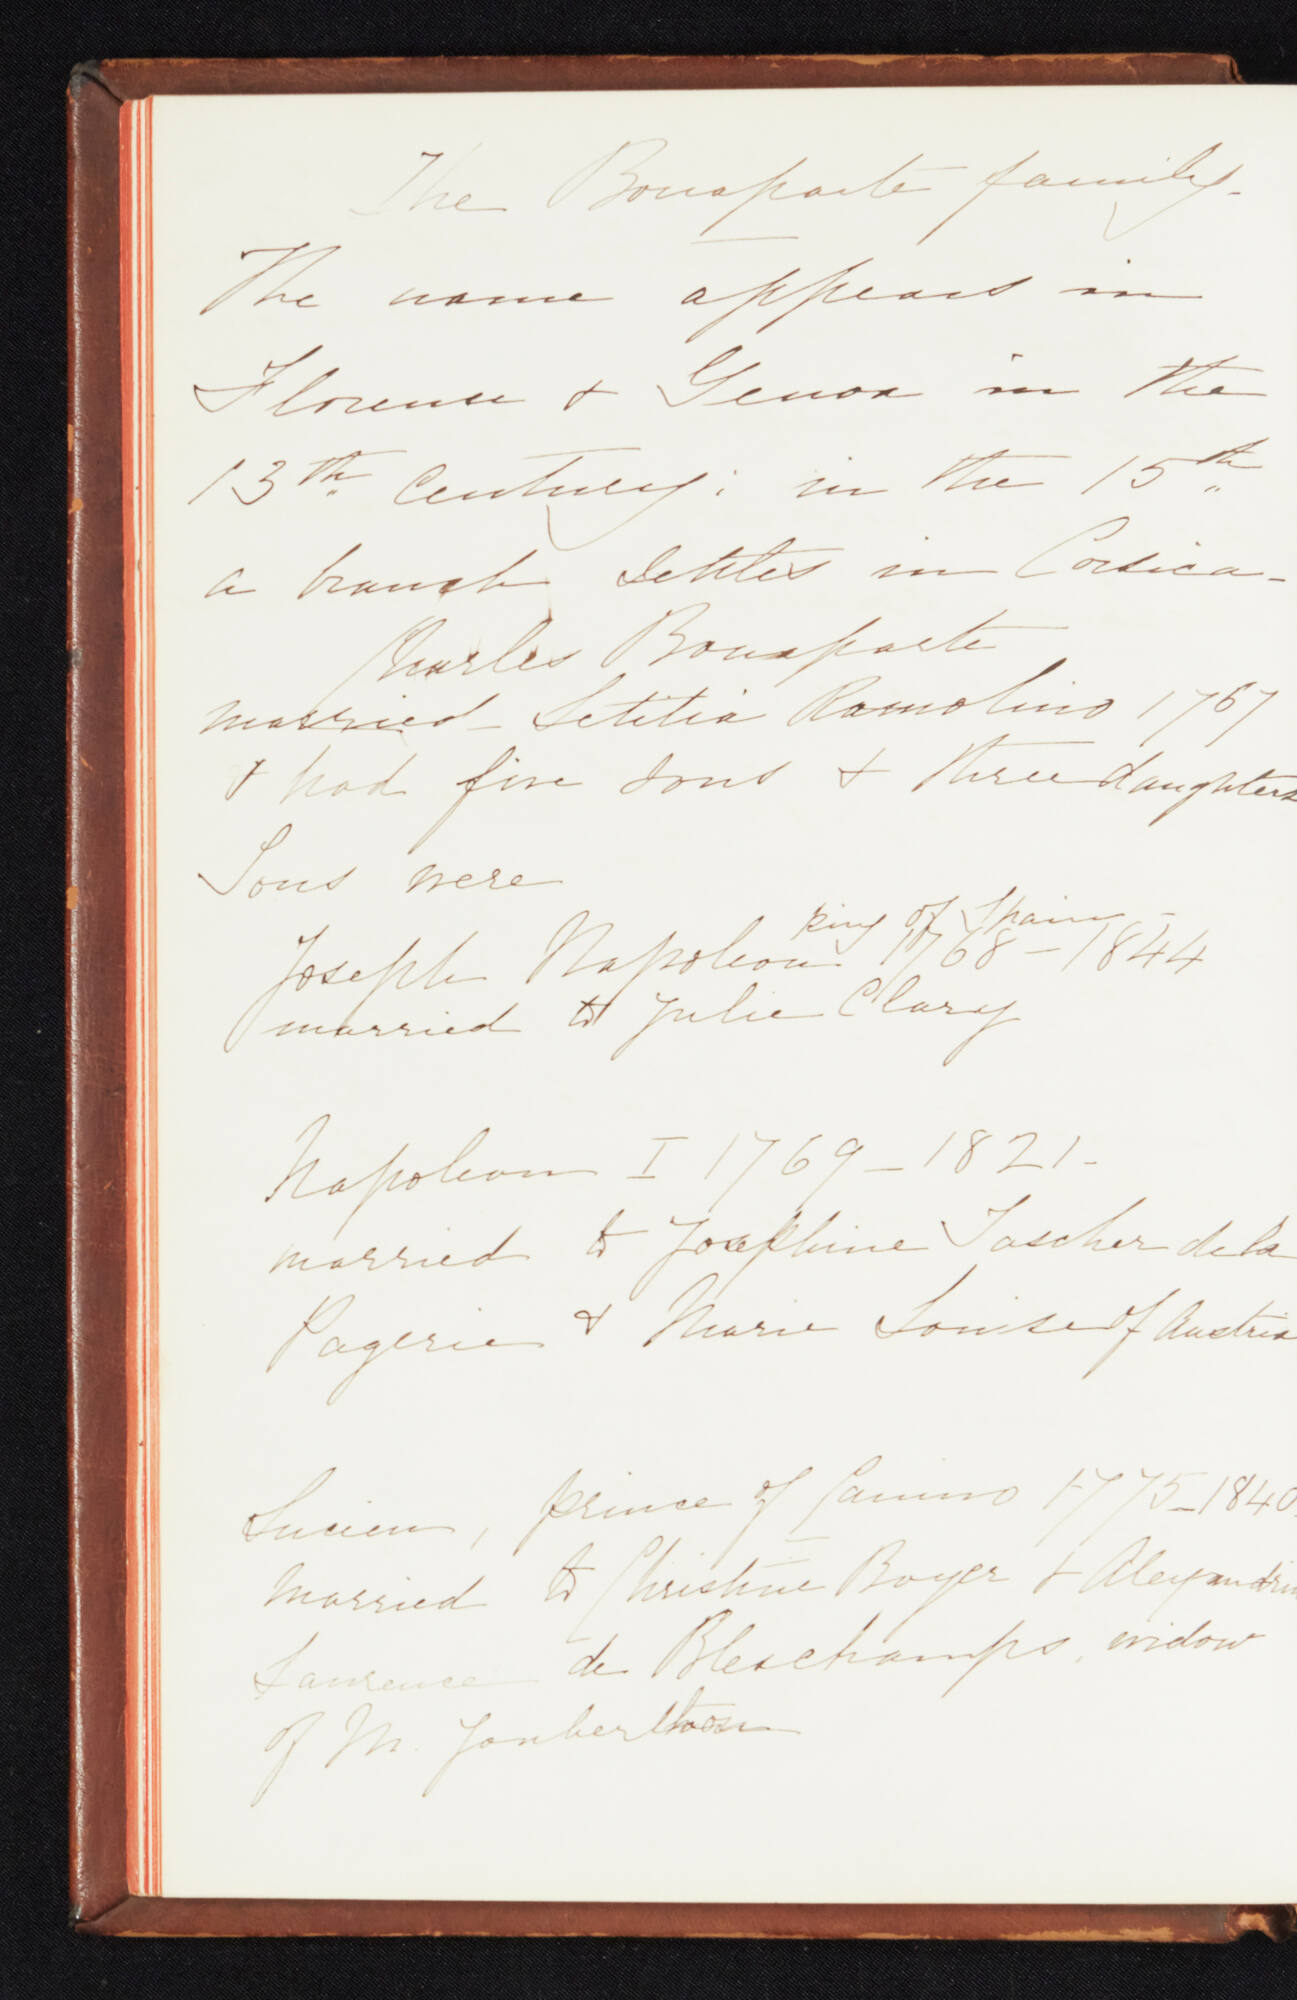 The Bonaparte family -
The name appears in
Florence & Genoa in the
13th century; in the 15th
a branch settles in Corsica -
Charles Bonaparte
married Letitia Ramolino 1767
& had five sons & three daughters
Sons were
king of Spain -
Joseph Napoleon 1768 - 1844
married to Julie Clary
Napoleon I 1769 - 1821 -
married to Josephine Tascher de la
Pagerie & Marie Louise of Austria
Lucien, prince of Canino 1775 - 1840.
married to Christine Boyer & Alexandrine
Laurence de Bleschamps, widow
of M. Jouberthon